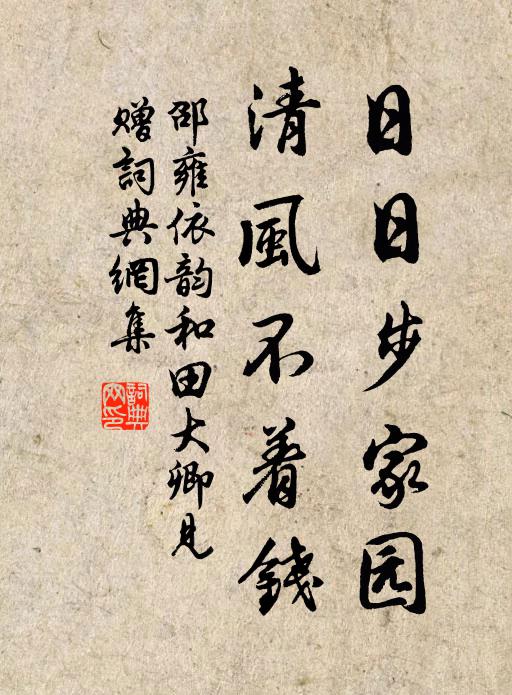 日日步家园
清風不着錢
邵雍依韵和田大卿見
贈詞典網集
詞典网印